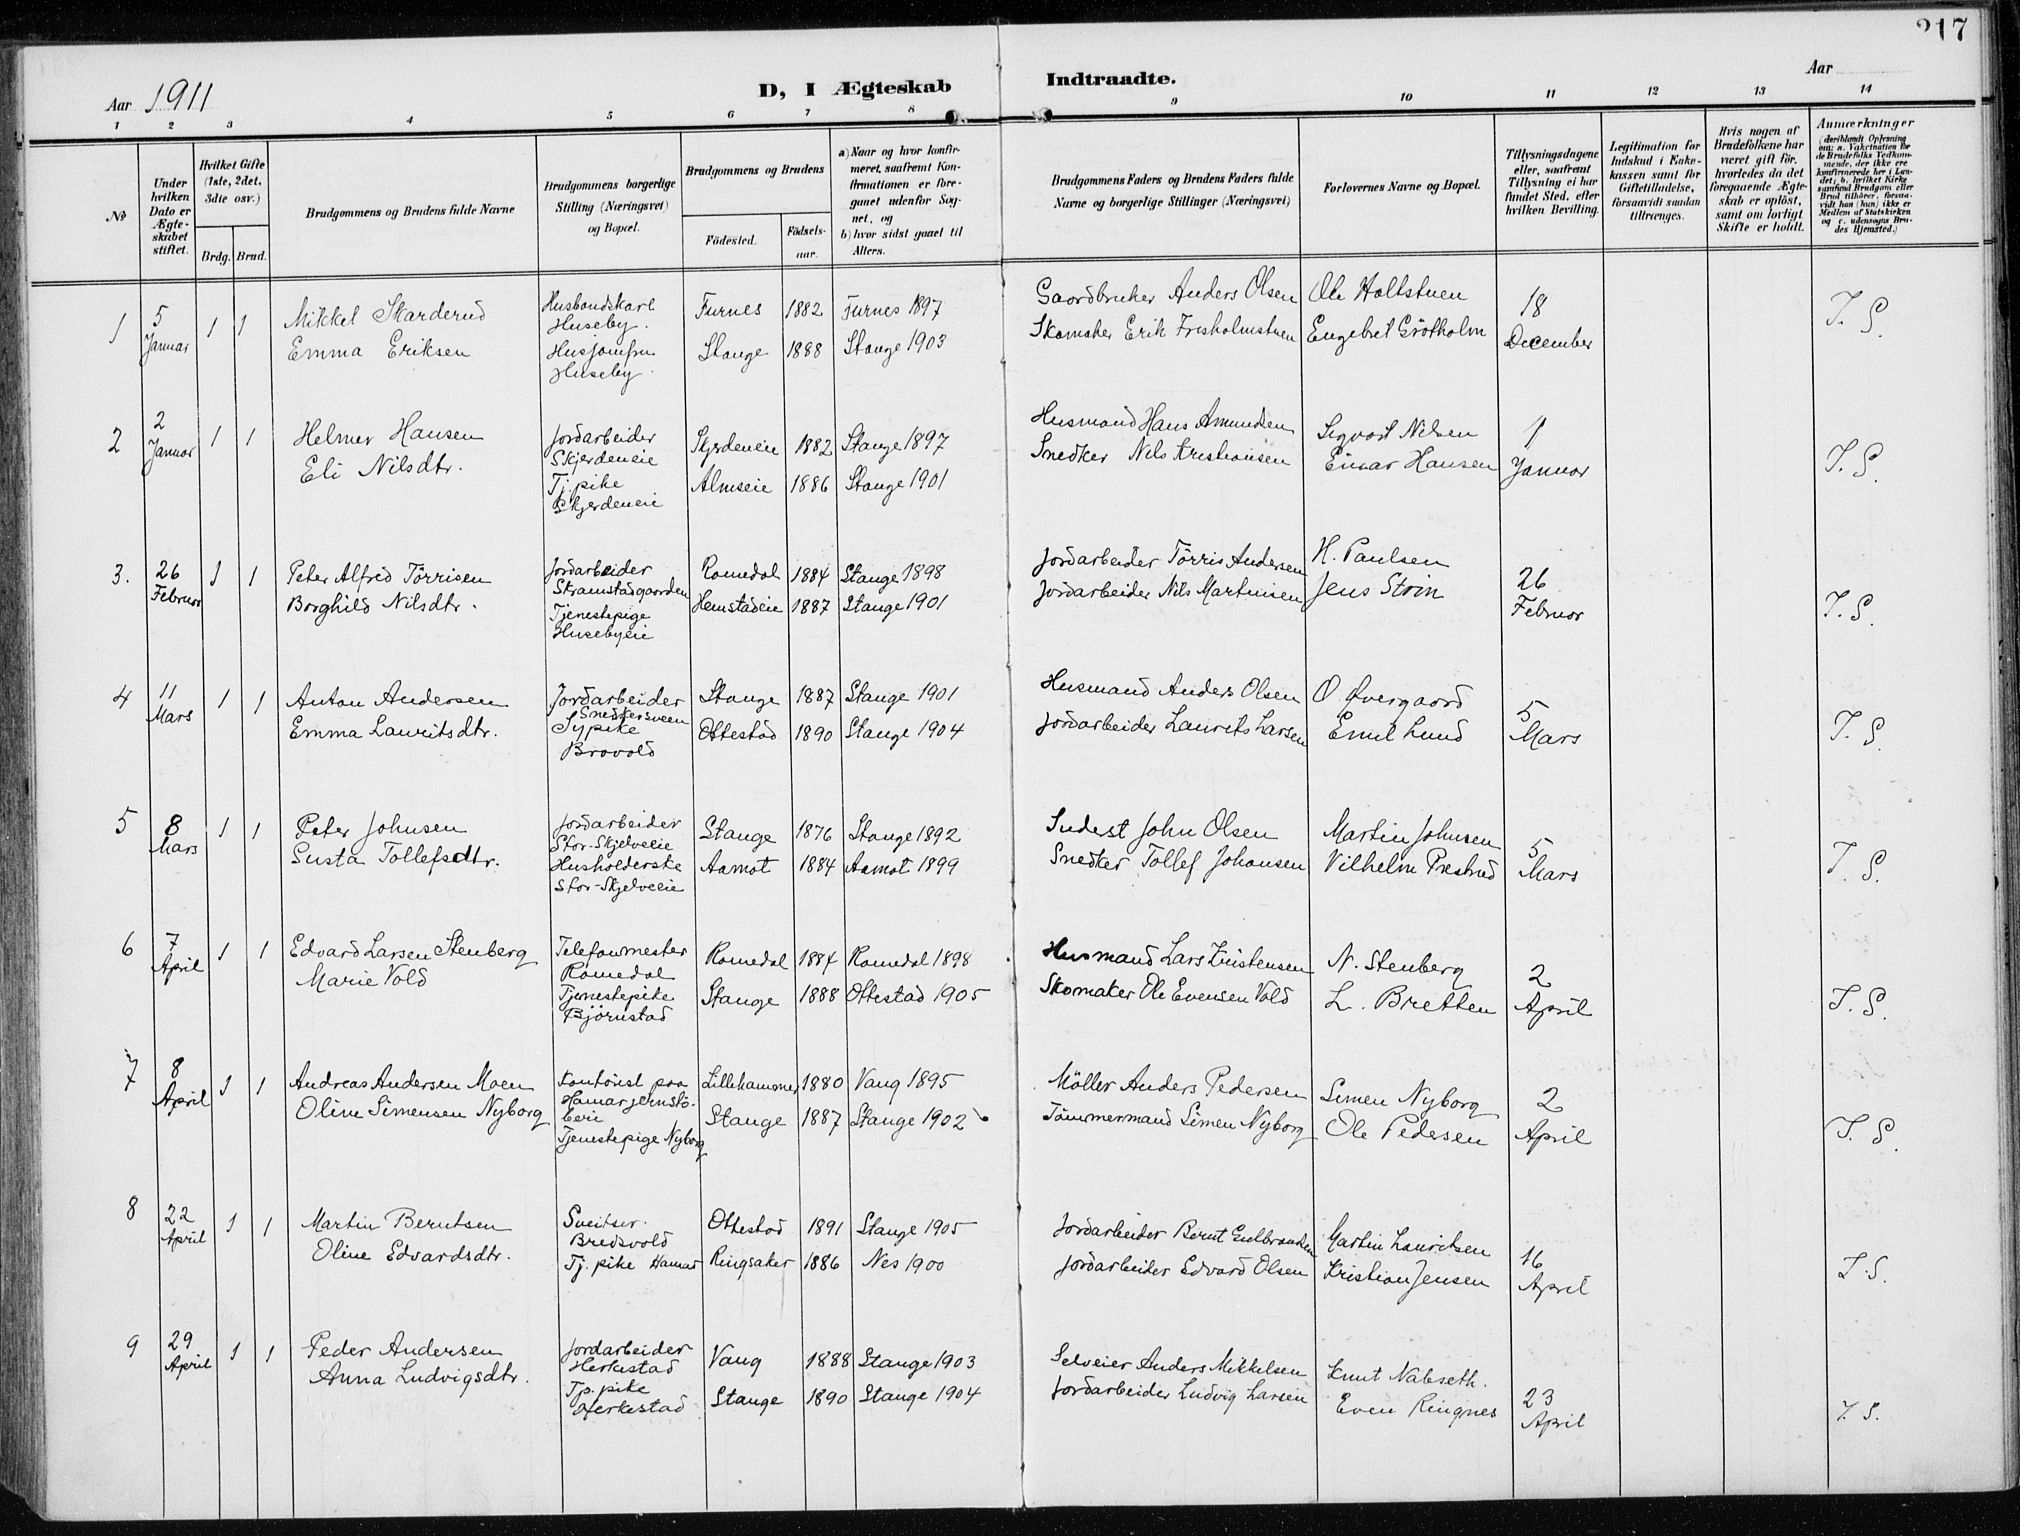 217
Aar 1911
D, I Ægteskab Indtraadte.
Aar
1 2 3 4 5 6 7 8 9 10 11 12 13 14
No
Under hvilken Dato er Ægteskabet stiftet.
Hvilket Gifte (1ste, 2det, 3die osv.)
Brdg. Brud.
Brudgommens og Brudens fulde Navne
Brudgommens borgerlige Stilling (Næringsvei) og Bopæl.
Brudgommens og Brudens
Fødested.
Fødselsaar.
a) Naar og hvor konfirmeret, saafremt Konfirmationen er foregaaet udenfor Sognet, og
b) hvor sidst gaaet til Alters.
Brudgommens Faders og Brudens Faders fulde Navne og borgerlige Stillinger (Næringsvei)
Forlovernes Navne og Bopæl.
Tillysningsdagene eller, saafremt Tillysning ei har fundet Sted, efter hvilken Bevilling.
Legitimation for Indskud i Enkekassen samt for Giftetilladelse, forsaavidt saadan tiltrænges.
Hvis nogen af Brudefolkene har været gift før, hvorledes da det foregaaende Ægteskab er opløst, samt om lovligt Skifte er holdt.
Anmærkninger
(deriblandt Oplysning om: a. Vakcination for de Brudefolks Vedkommende, der ikke ere konfirmerede her i Landet; b. hvilket Kirkesamfund Brudgom eller Brud tilhører, forsaavidt han (hun) ikke er Medlem af Statskirken og c. udensogns Brudes Hjemsted.)
1 5 Januar 1 1
Mikkel Skarderud
Emma Eriksen
Husbondskarl
Huseby.
Husjomfru
Huseby.
Furnes 1882 Furnes 1897
Stange 1888 Stange 1903
Gaardbruker Anders Olsen
Skomaker Erik Fresholmstuen
Ole Holtstuen
Engebret Grötholm
18 December
T. S.
2 2 Januar 1 1
Helmer Hansen
Eli Nilsdtr.
Jordarbeider
Skjerdeneie
Tj. pike
Skjerdeneie
Skjrdeneie 1882 Stange 1897
Almseie 1886 Stange 1901
Husmand Hans Amundsen
Snedker Nils Kristiansen
Sigvart Nilsen
Einar Hansen
1 Januar
T. S.
3. 26 Februar 1 1
Peter Alfred Törrisen
Borghild Nilsdtr.
Jordarbeider
Skramstadgaarden
Tjenestepige
Husebyeie
Romedal 1884 Stange 1898
Hemstadeie 1887 Stange 1901
Jordarbeider Törris Andersen
Jordarbeider Nils Martinsen
H. Paulsen
Jens Stoin
26 Februar
T. S.
4 11 Mars 1 1
Anton Andersen
Emma Lauritsdtr.
Jordarbeider
Snedkersveen
Sypike
Brovold
Stange 1887 Stange 1901
Ottestad 1890 Stange 1904
Husmand Anders Olsen
Jordarbeider Laurits Larsen
O. Övergaard
Emil Lund
5 Mars
T. S.
5 8 Mars 1 1
Peter Johnsen
Gusta Tollefsdtr.
Jordarbeider
Stor-Skjelveeie
Husholderske
Stor-Skjelveeie
Stange 1876 Stange 1892
Aamot 1884 Aamot 1899
Inderst John Olsen
Snedker Tollef Johansen
Martin Johnsen
Vilhelm Prestrud
5 Mars
T. S.
6 7 April 1 1
Edvard Larsen Stenberg
Marie Vold
Telefonmester
Romedal
Tjenestepike
Björnstad
Romedal 1884 Romedal 1898
Stange 1888 Ottestad 1905
Husmand Lars Kristensen
Skomaker Ole Evensen Vold
N. Stenberg
L. Bretten
2 April
T. S.
7 8 April 1 1
Andreas Andersen Moen
Oline Simensen Nyborg
Kontorist paa
Hamar jernstö-
beri
Tjenestepige Nyborg
Lillehammer 1880 Vang 1895
Stange 1887 Stange 1902
Möller Anders Pedersen
Tömmermand Simen Nyborg
Simen Nyborg
Ole Pedersen
2 April
T. S.
8 22 April 1 1
Martin Berntsen
Oline Edvardsdtr.
Sveitser.
Bredsvold
Tj. pike Hamar
Ottestad 1891 Stange 1905
Ringsaker 1886 Nes 1900
Jordarbeider Bernt Gulbrandsen
Jordarbeider Edvard Olsen
Martin Lauritsen
Kristian Jensen
16 April
T. S.
9 29 April 1 1
Peder Andersen
Anna Ludvigsdtr.
Jordarbeider
Herkestad
Tj. pike
Herkestad
Vang 1888 Stange 1903
Stange 1890 Stange 1904
Selveier Anders Mikkelsen
Jordarbeider Ludvig Larsen
Knut Nabseth.
Even Ringnes
23 April
T. S.